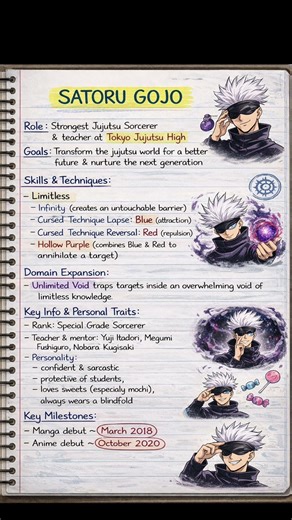 SATORU GOJO
Role: Strongest Jujutsu Sorcerer
& teacher at Tokyo Jujutsu High
Goals: Transform the jujutsu world for a better
future & nurture the next generation
Skills & Techniques:
- Limitless
- Infinity (creates an untouchable barrier)
- Cursed Technique Lapse: Blue (attraction)
- Cursed Technique Reversal: Red (repulsion)
- Hollow Purple (combines Blue & Red to
annihilate a target)
Domain Expansion:
- Unlimited Void traps targets inside an overwhelming void of
limitless knowledge.
Key Info & Personal Traits:
- Rank: Special Grade Sorcerer
- Teacher & mentor: Yuji Itadori, Megumi
Fushiguro, Nobara Kugisaki
- Personality:
- confident & sarcastic
- protective of students,
loves sweets (especialy mochi),
always wears a blindfold
Key Milestones:
- Manga debut ~ March 2018
- Anime debut ~ October 2020